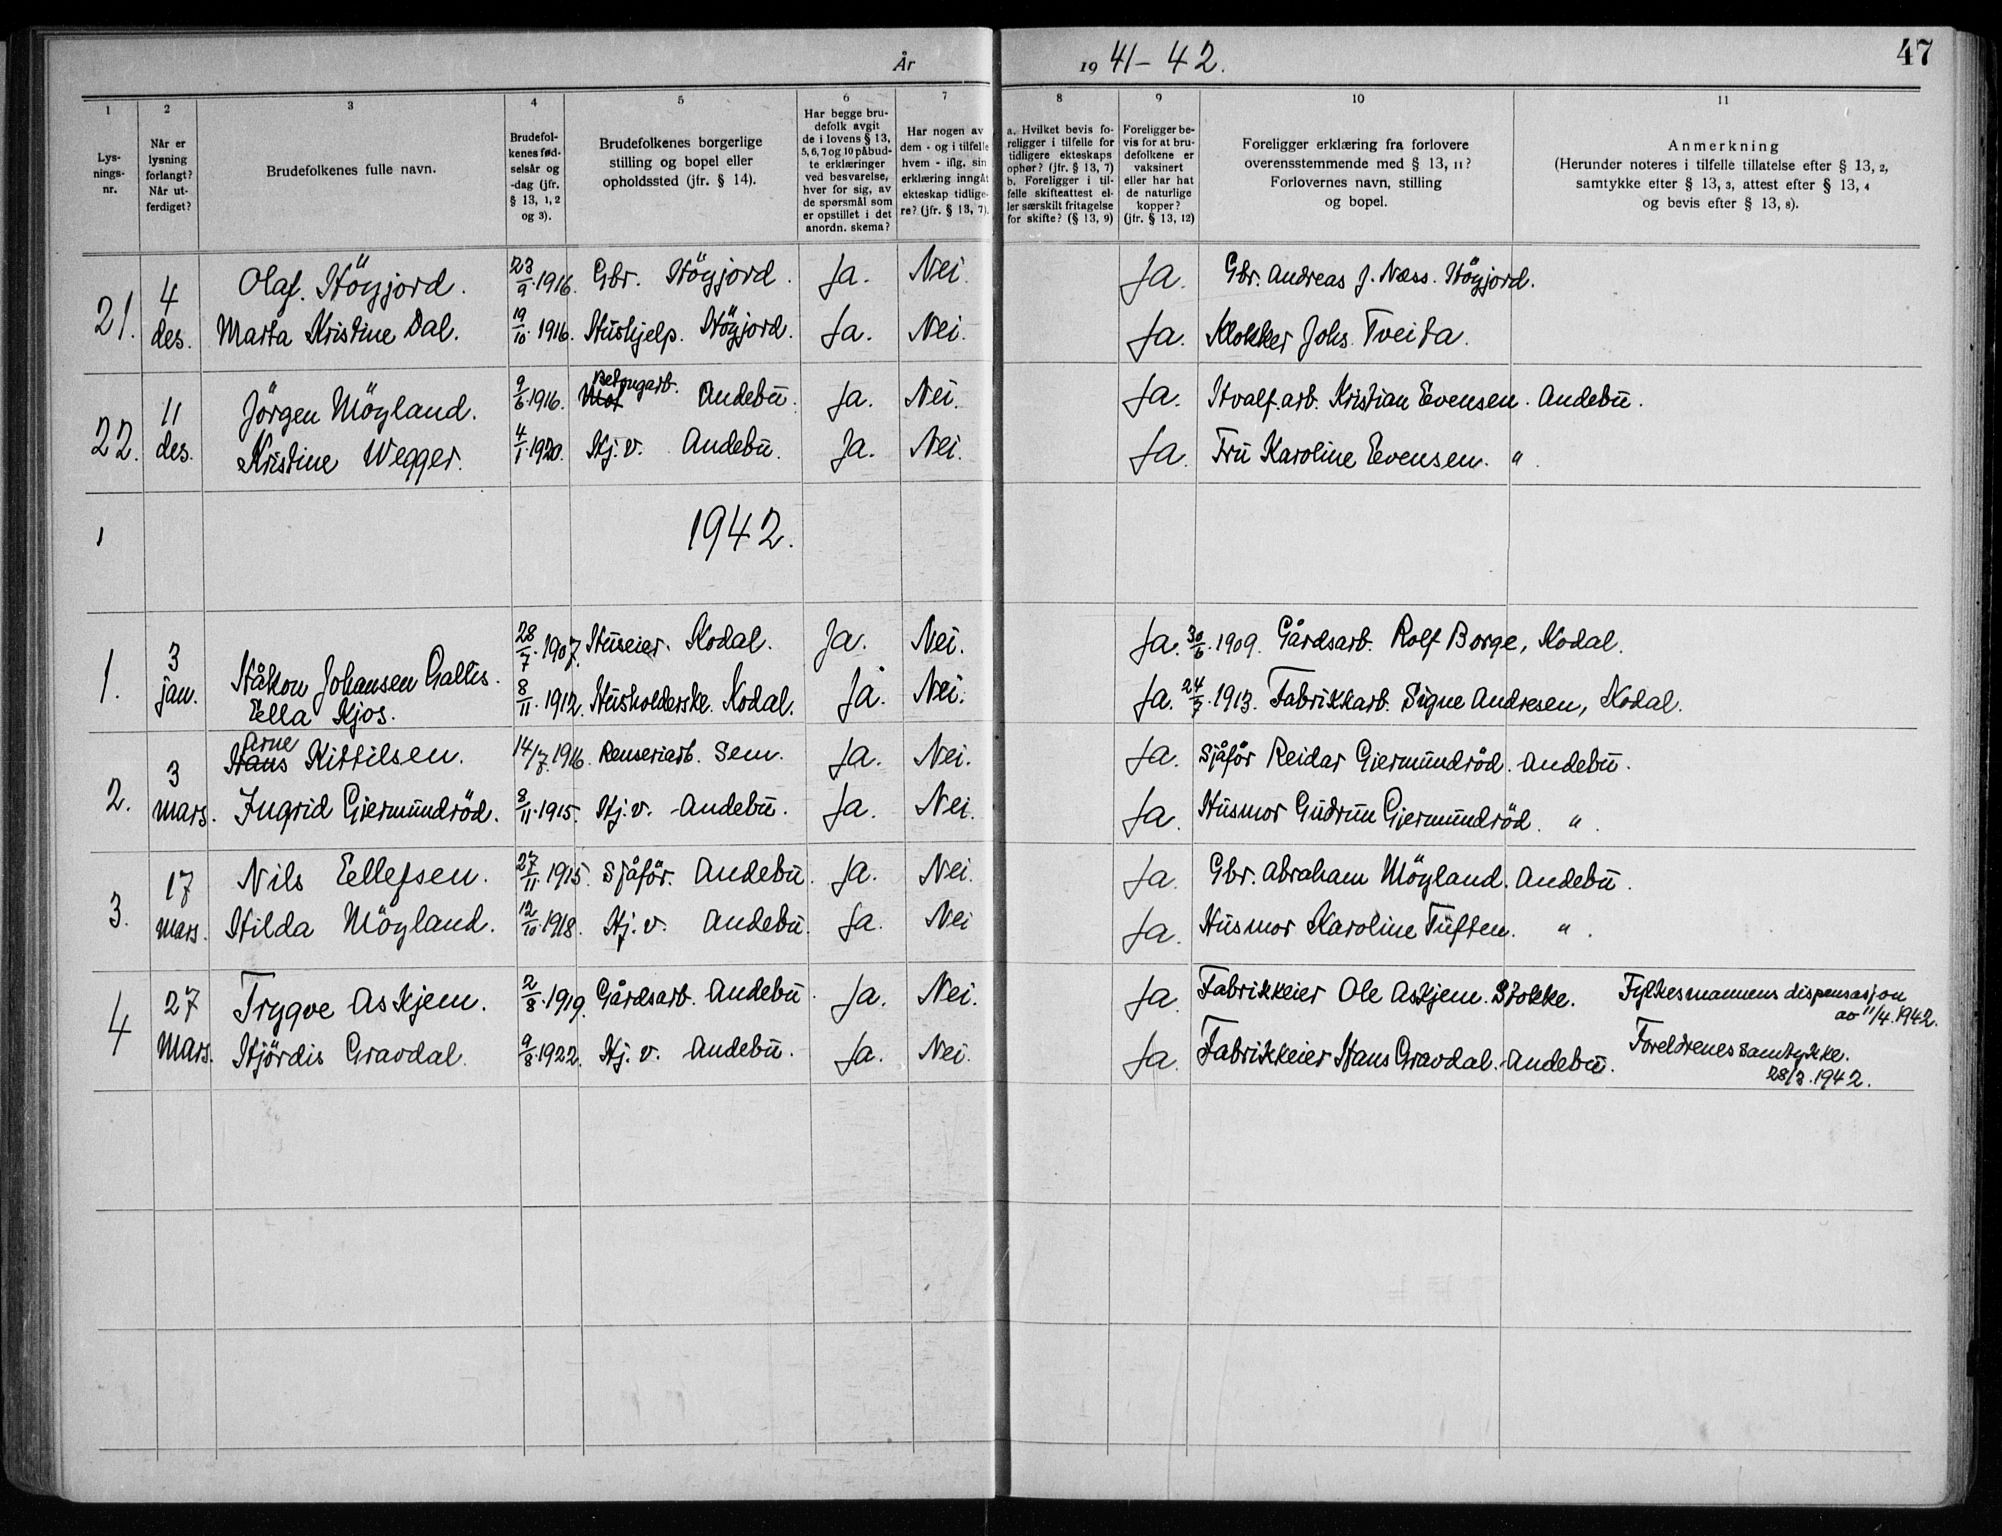 År 1941-42.
47
1 2 3 4 5 6 7 8 9 10 11
Lysningsnr.
Når er lysning forlangt? Når utferdiget?
Brudefolkenes fulle navn.
Brudefolkenes fødselsår og -dag (jfr. § 13, 1, 2 og 3).
Brudefolkenes borgerlige stilling og bopel eller opholdssted (jfr. § 14).
Har begge brudefolk avgit de i lovens § 13, 5, 6, 7 og 10 påbudte erklæringer ved besvarelse, hver for sig, av de spørsmål som er opstillet i det anordn. skema?
Har nogen av dem - og i tilfelle hvem - iflg. sin erklæring inngåt ekteskap tidligere? (jfr. § 13, 7).
a. Hvilket bevis foreligger i tilfelle for tidligere ekteskaps ophør? (jfr. § 13, 7) b. Foreligger i tilfelle skifteattest eller særskilt fritagelse for skifte? (§ 13, 9)
Foreligger bevis for at brudefolkene er vaksinert eller har hat de naturlige kopper? (jfr. § 13, 12)
Foreligger erklæring fra forlovere overensstemmende med § 13, 11? Forlovernes navn, stilling og bopel.
Anmerkning (Herunder noteres i tilfelle tillatelse efter § 13, 2, samtykke efter § 13, 3, attest efter § 13, 4 og bevis efter § 13, 8).
21. 4 des. Olaf Högjord. 23/9.1916. Gbr. Högjord. Ja. Nei. Ja. Gbr. Andreas J. Næss. Högjord.
Marta Kristine Dal. 19/10.1916. Hushjelp. Högjord. Ja. Nei. Ja. Klokker Johs. Tveita.
22. 11 des. Jörgen Möyland. 9/6.1916. Betongarb. Andebu. Ja. Nei. Ja. Hvalf.arb. Kristian Evensen. Andebu.
Kristine Wegger. 4/1.1920. Hj.v. Andebu. Ja. Nei. Ja. Fru Karoline Evensen. "
1942.
1. 3 jan. Håkon Johansen Gallis. 28/7.1907. Huseier. Kodal. Ja. Nei. Ja. 30/6.1909. Gårdsarb. Rolf Borge, Kodal.
Ella Hjos. 8/11.1912. Husholderske. Kodal. Ja. Nei. Ja. 24/7.1913. Fabrikkarb. Signe Andresen, Kodal.
2. 3 mars. Hans Arne Kittilsen. 14/7.1916. Renseriarb. Sem. Ja. Nei. Ja. Sjåför Reidar Gjermundröd. Andebu.
Ingrid Gjermundröd. 8/11.1915. Hj.v. Andebu. Ja. Nei. Ja. Husmor Gudrun Gjermundröd. "
3. 17 mars. Nils Ellefsen. 27/11.1915. Sjåför. Andebu. Ja. Nei. Ja. Gbr. Abraham Möyland. Andebu.
Hilda Möyland. 12/10.1918. Hj.v. Andebu. Ja. Nei Ja. Husmor Karoline Tuften. "
4 27 Mars. Trygve Askjem. 2/8.1919. Gårdsarb. Andebu. Ja. Nei. Ja. Fabrikkeier Ole Askjem. Stokke. Fylkesmannens dispensasjon av 11/4.1942.
Hjördis Gravdal. 9/8.1922. Hj.v. Andebu. Ja. Nei. Ja. Fabrikkeier Hans Gravdal. Andebu. Foreldrenes samtykke. 28/3.1942.